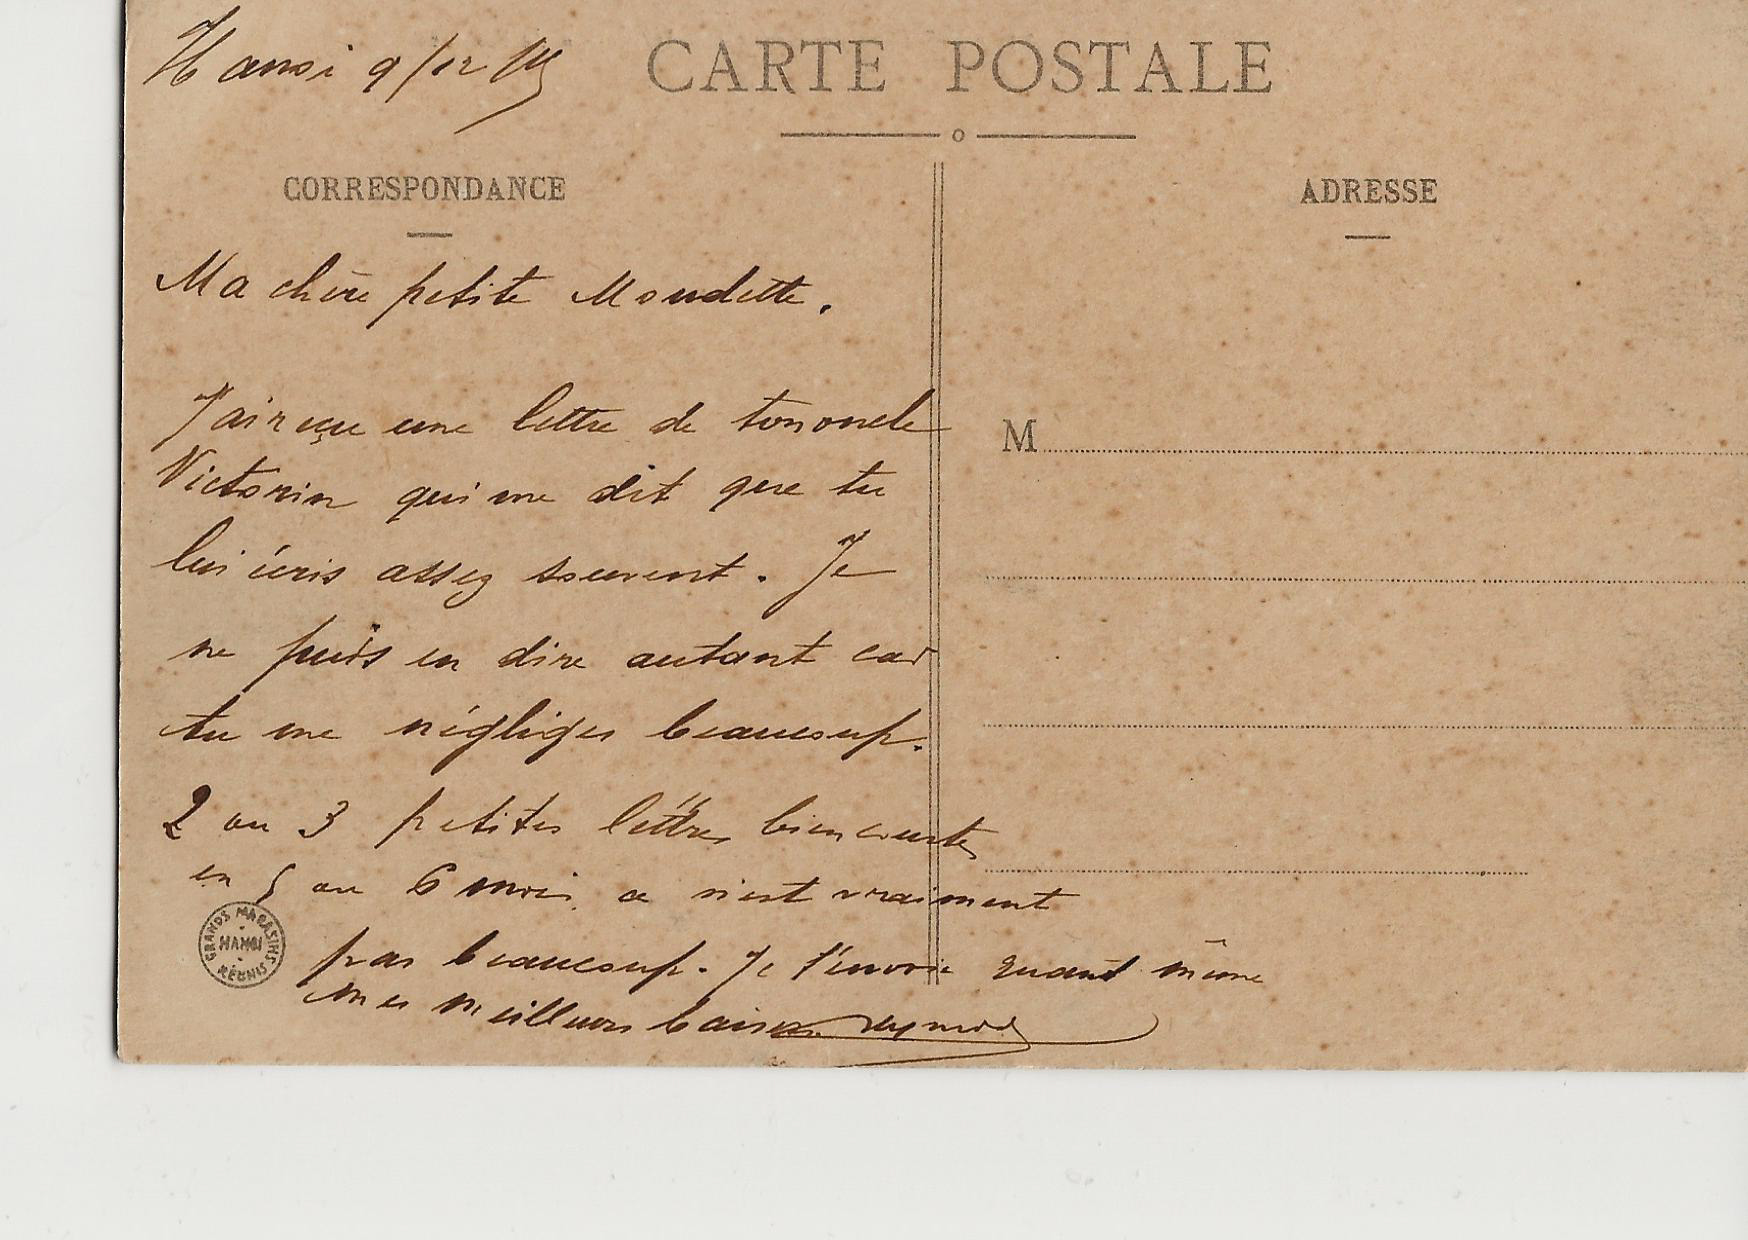 Hanoi 9/12
CARTE POSTALE
CORRESPONDANCE
ADRESSE
Ma chère petite Moudette.
J'ai reçu une lettre de ton oncle
Victorin qui me dit que tu
lui écris assez souvent. Je
ne puis en dire autant car
tu me négliges beaucoup.
2 ou 3 petites lettres bien courtes
en 5 ou 6 mois ce n'est vraiment
pas beaucoup. Je t'envoie quand même
mes meilleurs baisers
M
GRANDS MAGASINS RÉUNIS
HANOI